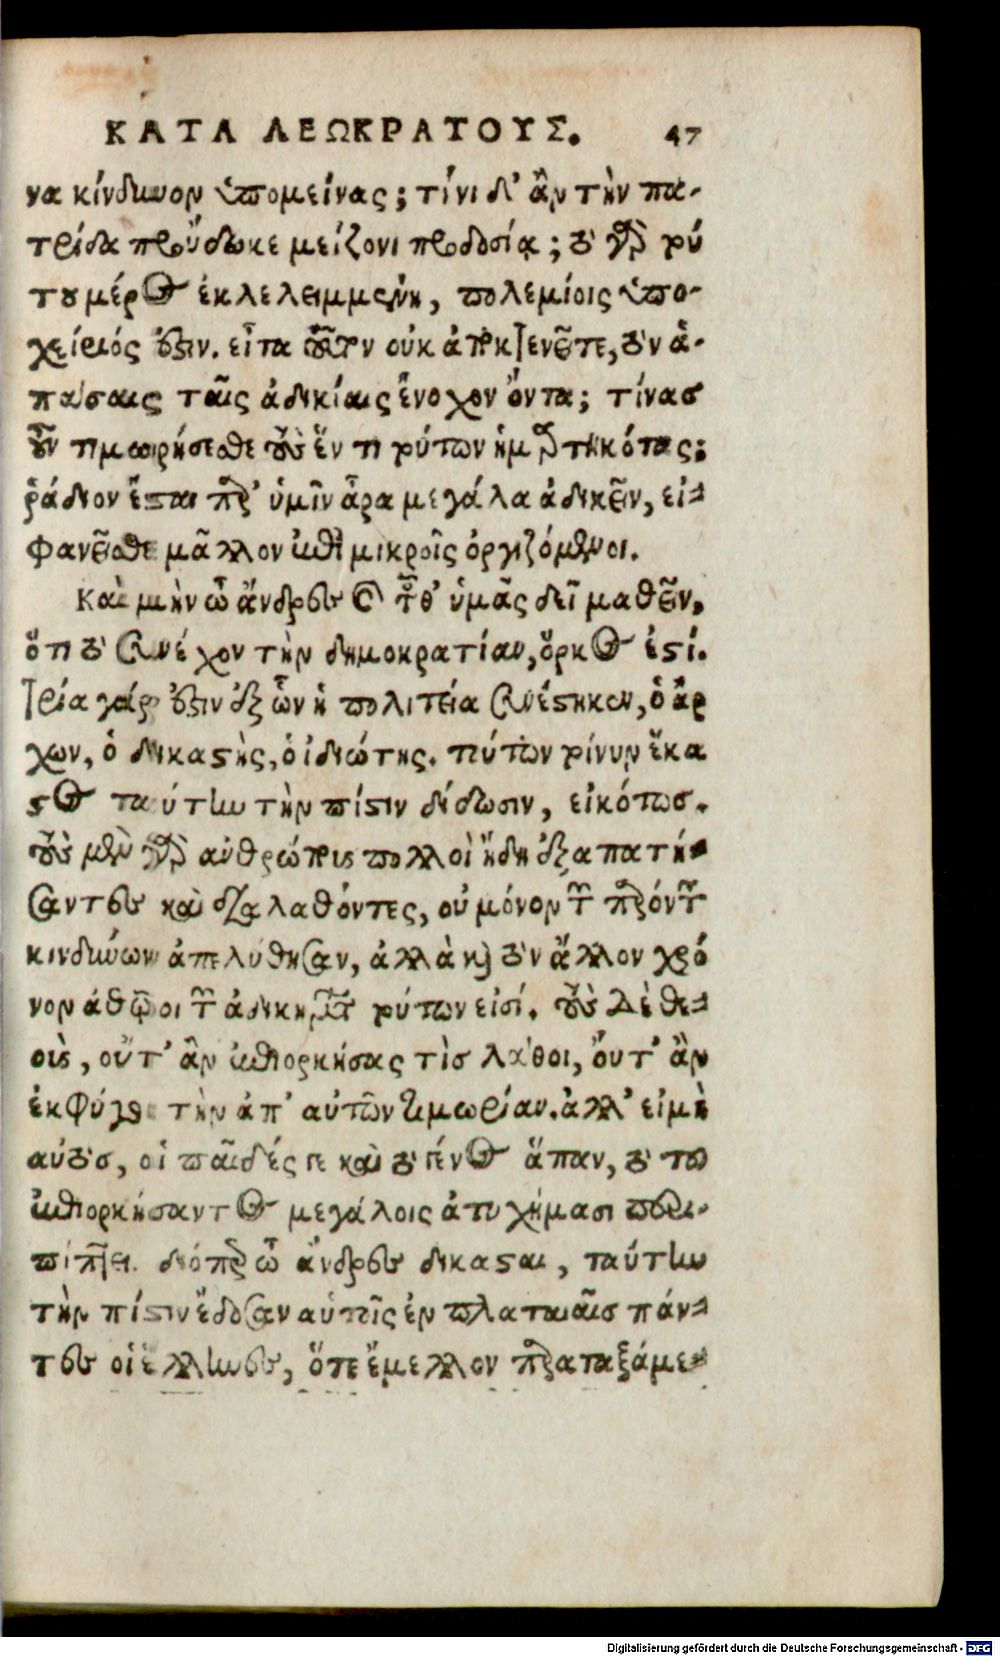 ΚΑΤΑ ΛΕΩΚΡΑΤΟΥΣ. 47
να κίνδυνον ὑπομείνας; τίνι δ' ἂν τὴν πα-
τρίδα προὔδωκε μείζονι προδοσίᾳ; οὐ γὰρ τού
του μέρος ἐκλελειμμένη, πολεμίοις ὑπο-
χείριός ἐστιν. εἶτα τοῦτον οὐκ ἀποκτενεῖτε, τὸν ἁ-
πάσαις ταῖς ἀδικίαις ἔνοχον ὄντα; τίνας
οὖν τιμωρήσεσθε τοὺς ἕν τι τούτων ἡμαρτηκότας;
ῥάδιον ἔσται παρ' ὑμῖν ἄρα μεγάλα ἀδικεῖν, εἰ
φανεῖσθε μᾶλλον ἐπὶ μικροῖς ὀργιζόμενοι.
Καὶ μὴν ὦ ἄνδρες καὶ τοῦθ' ὑμᾶς δεῖ μαθεῖν,
ὅτι τὸ συνέχον τὴν δημοκρατίαν, ὅρκος ἐστί.
τρία γάρ ἐστιν ἐξ ὧν ἡ πολιτεία συνέστηκεν, ὁ ἄρ
χων, ὁ δικαστὴς, ὁ ἰδιώτης. τούτων τοίνυν ἕκα
στος ταύτην τὴν πίστιν δίδωσιν, εἰκότως.
τοὺς μὲν γὰρ ἀνθρώπους πολλοὶ ἤδη ἐξαπατή-
σαντες καὶ διαλαθόντες, οὐ μόνον τῶν παρόντων
κινδύνων ἀπελύθησαν, ἀλλὰ καὶ τὸν ἄλλον χρό
νον ἀθῷοι τῶν ἀδικημάτων τούτων εἰσί. τοὺς δὲ θε-
οὺς, οὔτ' ἂν ἐπιορκήσας τὶς λάθοι, οὔτ' ἂν
ἐκφύγοι τὴν ἀπ' αὐτῶν τιμωρίαν. ἀλλ' εἰ μὴ
αὐτὸς, οἱ παῖδές γε καὶ τὸ γένος ἅπαν, τὸ τοῦ
ἐπιορκήσαντος μεγάλοις ἀτυχήμασι περι-
πίπτει. διόπερ ὦ ἄνδρες δικασταὶ, ταύτην
τὴν πίστιν ἔδοσαν αὑτοῖς ἐν πλαταιαῖς πάν-
τες οἱ ἕλληνες, ὅτε ἔμελλον παραταξάμε-
Digitalisierung gefördert durch die Deutsche Forschungsgemeinschaft - DFG